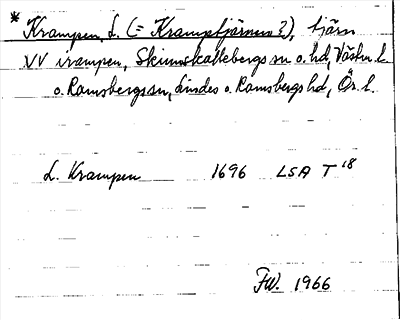 * Krampen, L. (= Kramptjärnen?), tjärn
VV Krampen, Skinnskattebergs sn o. hd, Västm. l.
o. Ramsbergs sn, Lindes o. Ramsbergs hd, Ör. l.
L. Krampen 1696 LSA T 18
FW. 1966